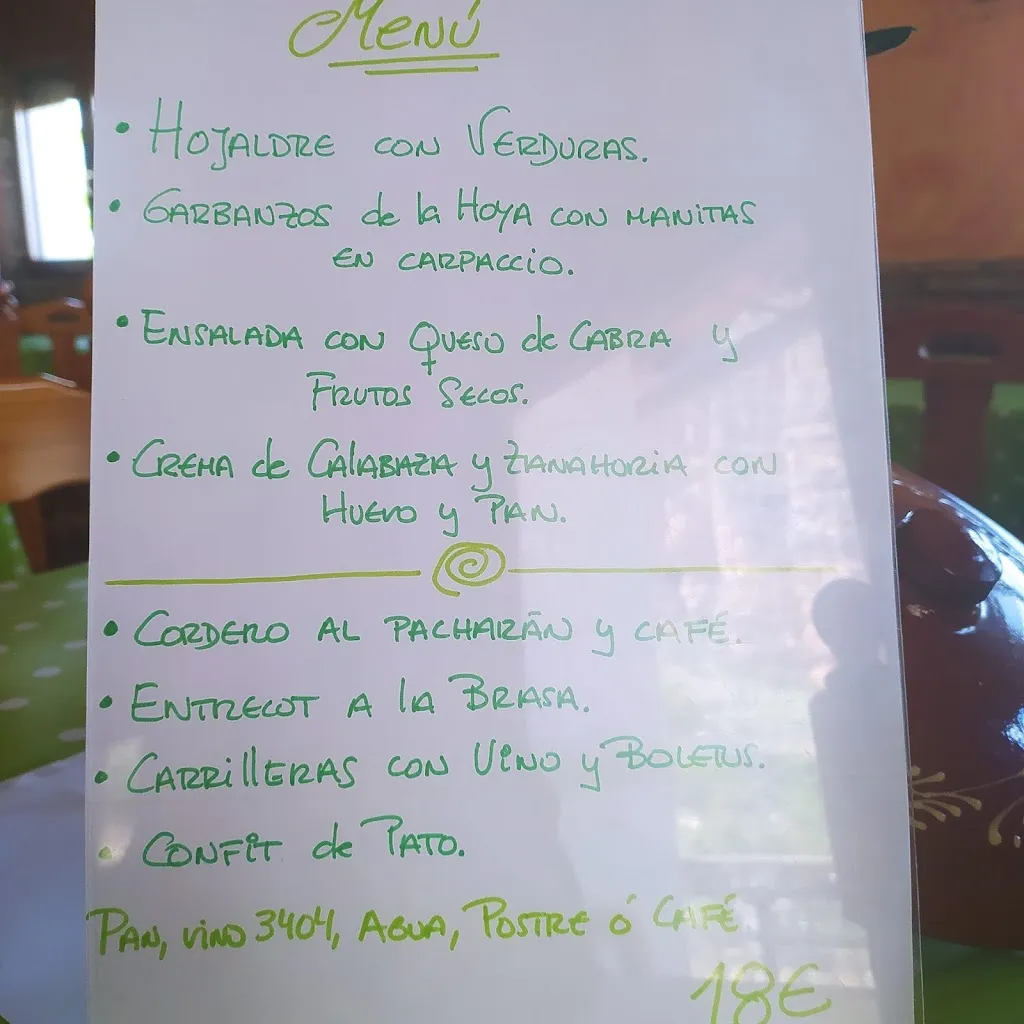 Menú
• Hojaldre con Verduras.
• Garbanzos de la Hoya con manitas
en carpaccio.
• Ensalada con Queso de Cabra y
Frutos Secos.
• Crema de Calabaza y Zanahoria con
Huevo y Pan.
• Cordero al pacharán y café.
• Entrecot a la Brasa.
• Carrilleras con Vino y Boletus.
• Confit de Pato.
Pan, vino 3404, Agua, Postre ó Café
18€